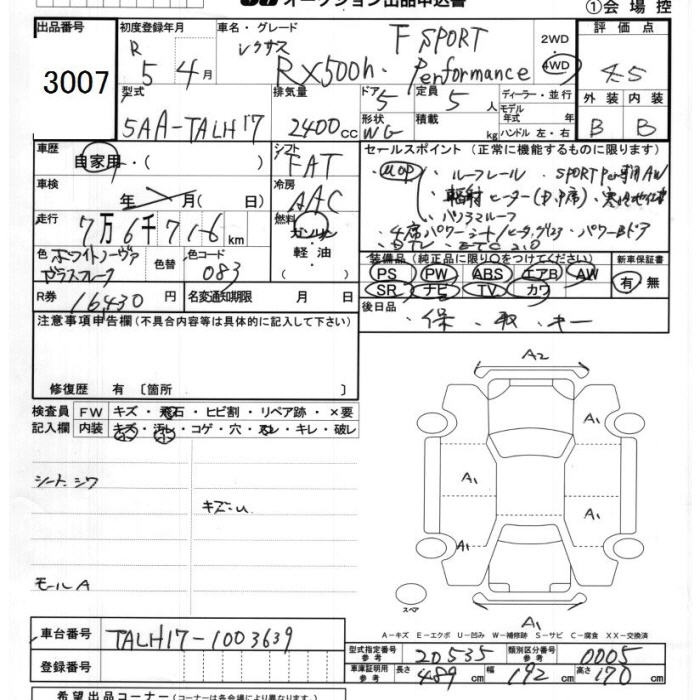 オークション出品申込書
①会場控
出品番号
3007
初度登録年月
R 5年 4月
車名・グレード
レクサス RX500h F SPORT Performance
2WD
4WD
評価点
4.5
型式
5AA-TALH17
排気量
2400cc
ドア
5
形状
WG
定員
5人
積載
kg
ディーラー・並行
モデル年式 年
ハンドル 左・右
外装 内装
B B
車歴
自家用・( )
シフト
FAT
車検
年 月( 日)
冷房
AAC
走行
7万6千716km
燃料
ガソリン
・
軽油
( )
色
ホワイトノーヴァ
ガラスフレーク
色替
色コード
083
R券
16,430円
名変通知期限 月 日
セールスポイント (正常に機能するものに限ります)
MOP ルーフレール・SPORT Per専用AW
輻射ヒーター(D,P席)・寒冷地仕様
・パノラマルーフ
・4席パワーシート/ヒーター・パワーBドア
・DTV・ETC2.0
装備品(純正品に限り○をつけてください)
PS PW ABS エアB AW
SR ナビ TV カワ
新車保証書
有・無
後日品
保・取・キー
注意事項申告欄(不具合内容等は具体的に記入して下さい)
修復歴 有 〔箇所 〕
検査員
記入欄
FW キズ・飛石・ヒビ割・リペア跡・×要
内装 キズ・汚レ・コゲ・穴・スレ・キレ・破レ
シートシワ
キズ・U
モールA
A2
A1
A1
A1
A1
A1
スペア
A-キズ E-エクボ U-凹み W-補修跡 S-サビ C-腐食 XX-交換済
車台番号
TALH17-1003639
登録番号
型式指定番号
参考
20535
類別区分番号
参考
0005
車庫証明用
参考
長さ 489cm 幅 192cm 高さ 170cm
希望出品コーナー(コーナーは各会場により異なります)